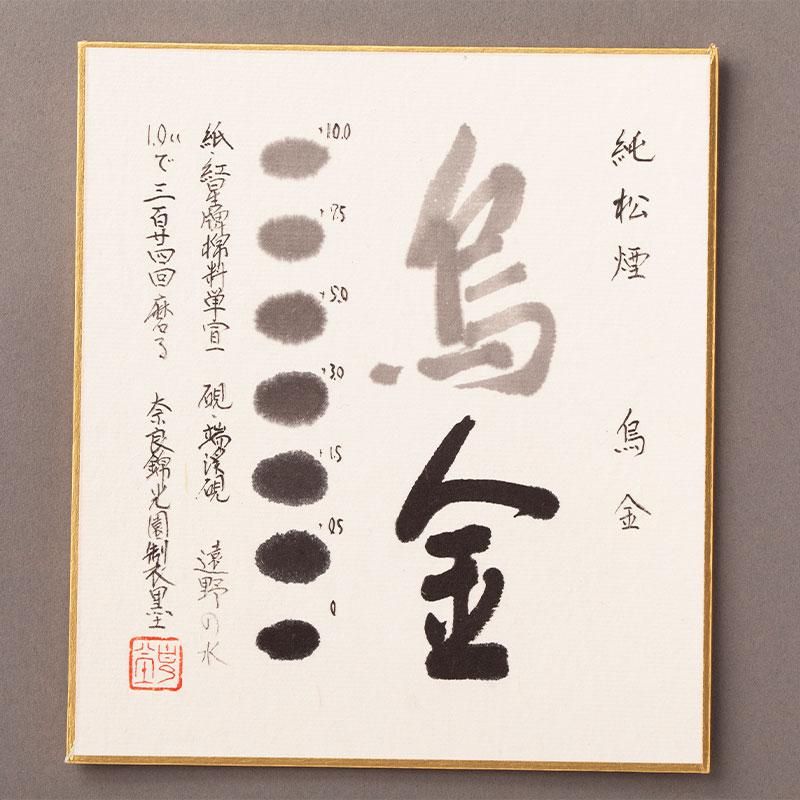 純松煙 烏金
烏金
+10.0
+7.5
+5.0
+3.0
+1.5
+0.5
0
紙・紅星牌棉料単宣 硯・端渓硯 遠野の水
1.0ccで三百廿四回磨る 奈良錦光園製墨